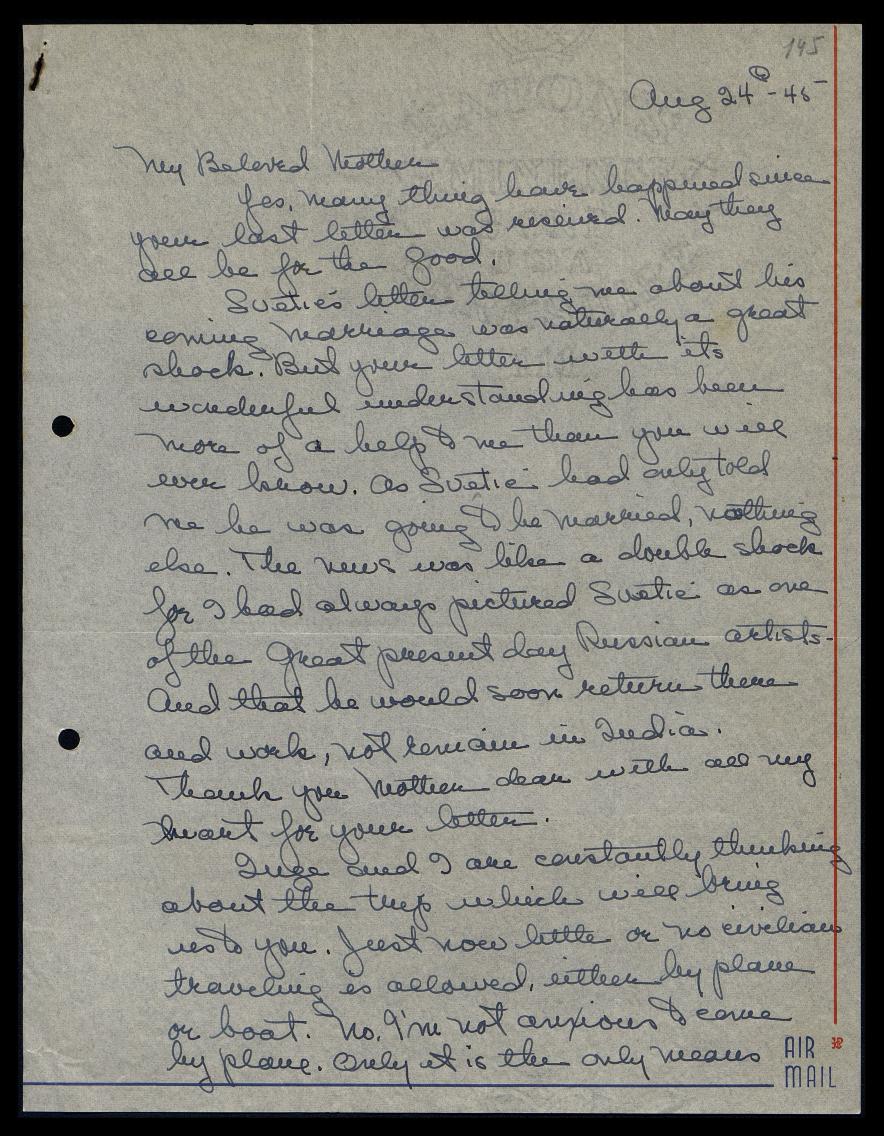 145
Aug 24th - 45
My Beloved Mother
Yes, many thing have happened since
your last letter was received. May they
all be for the good.
Svetie's letter telling me about his
coming marriage was naturally a great
shock. But your letter with its
wonderful understanding has been
more of a help to me than you will
ever know. As Svetie had only told
me he was going to be married, nothing
else. The news was like a double shock
for I had always pictured Svetie as one
of the great present day Russian artists -
And that he would soon return there
and work, not remain in India.
Thank you Mother dear with all my
heart for your letter.
Inge and I are constantly thinking
about the trip which will bring
us to you. Just now little or no civilian
traveling is allowed, either by plane
or boat. No, I'm not anxious to come
by plane. Only it is the only means
AIR
MAIL